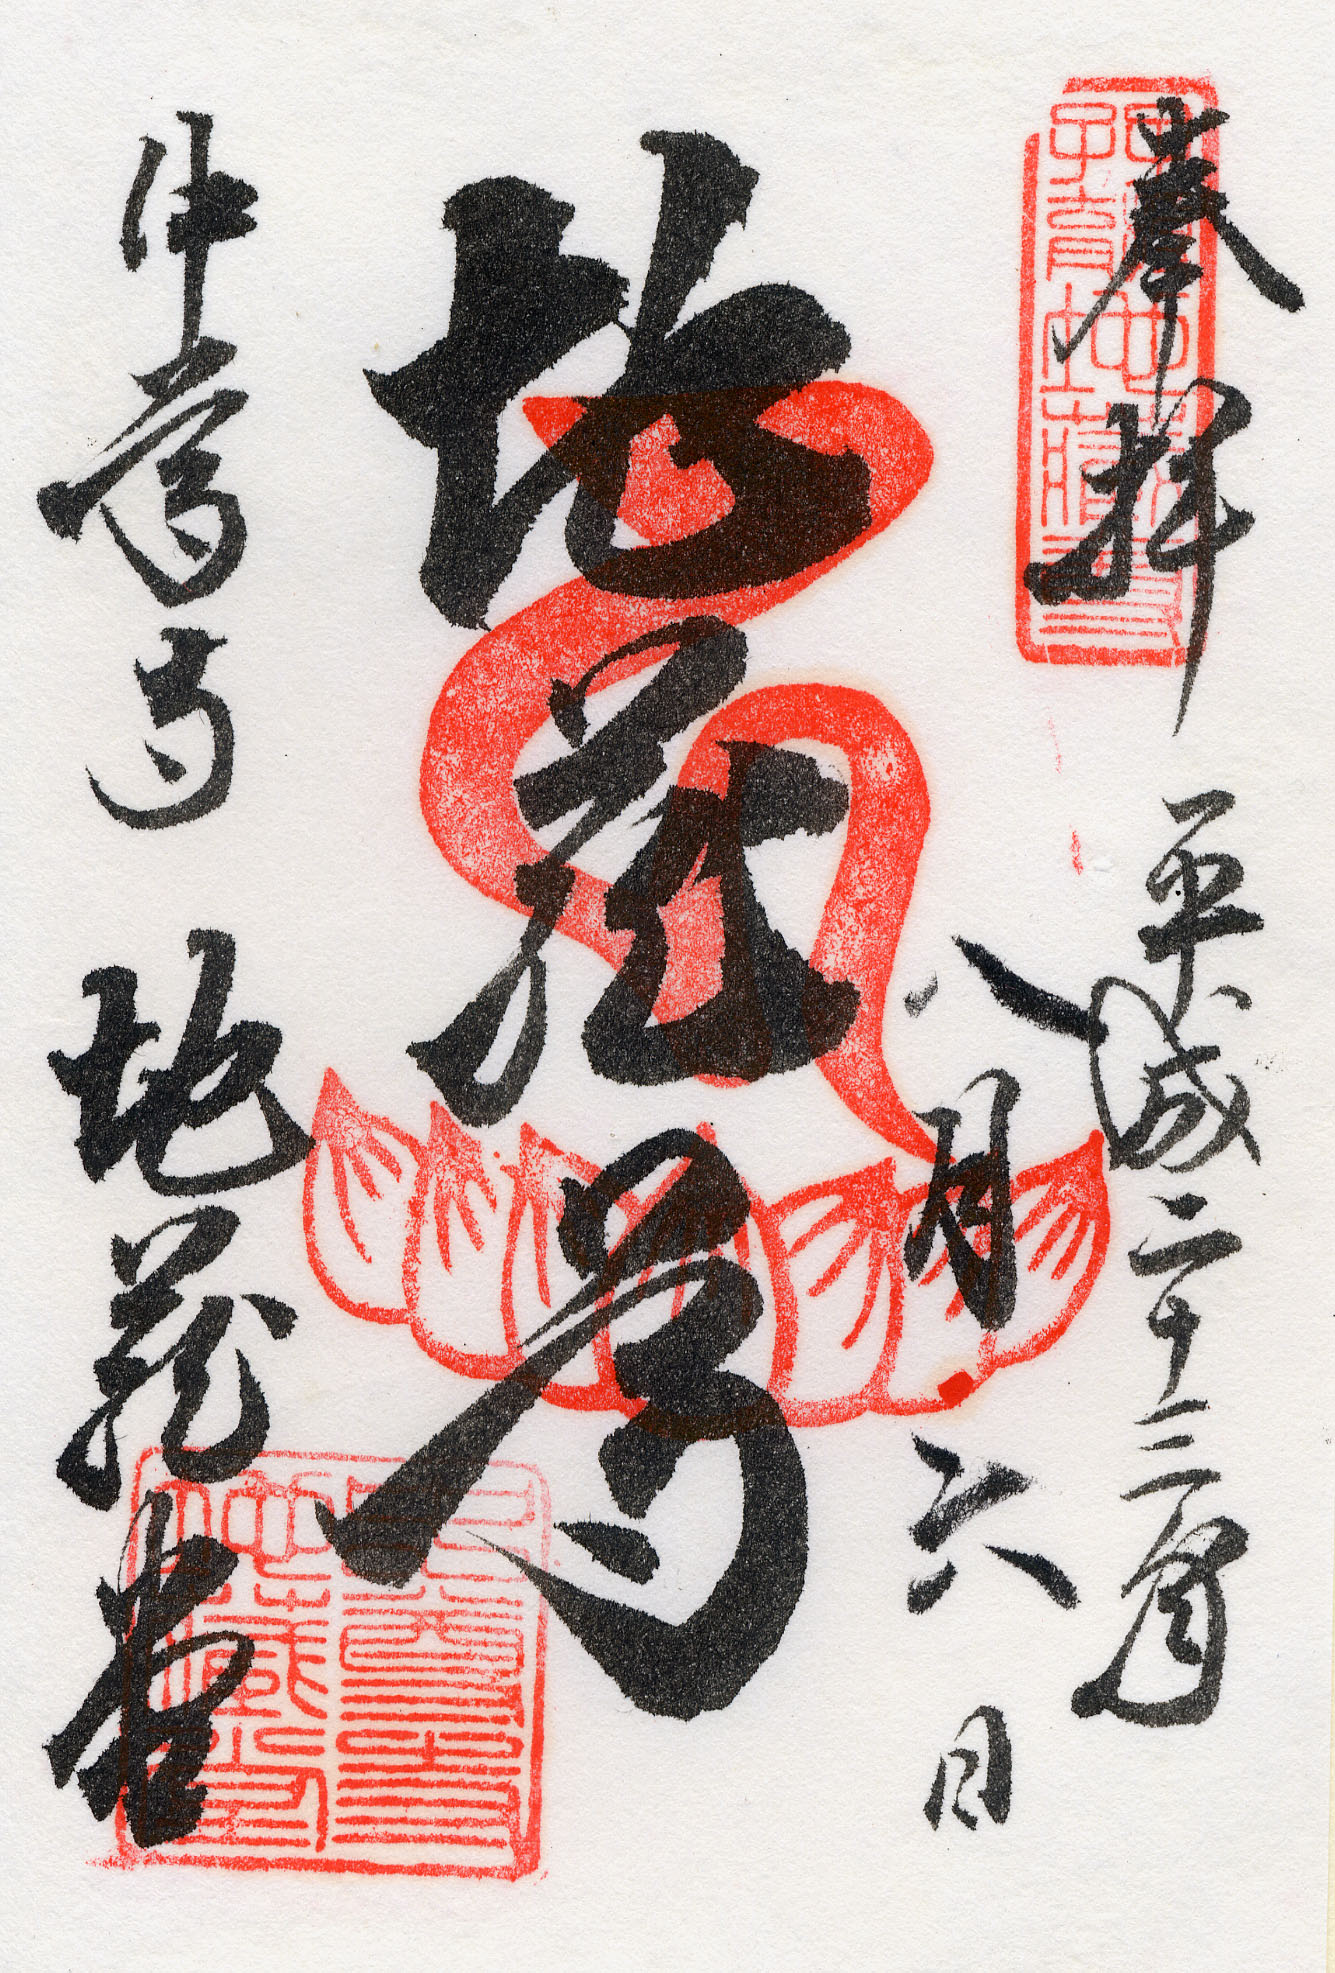 奉拝
平成二十三年
八月六日
地蔵尊
中尊寺 地蔵堂